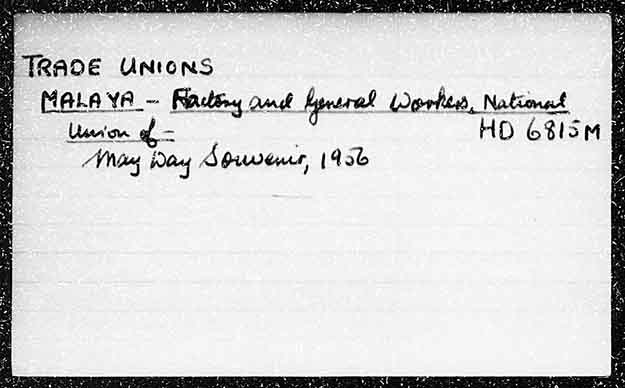 TRADE UNIONS
MALAYA - Factory and General Workers, National
Union of - HD 6815 M
May Day Souvenir, 1956